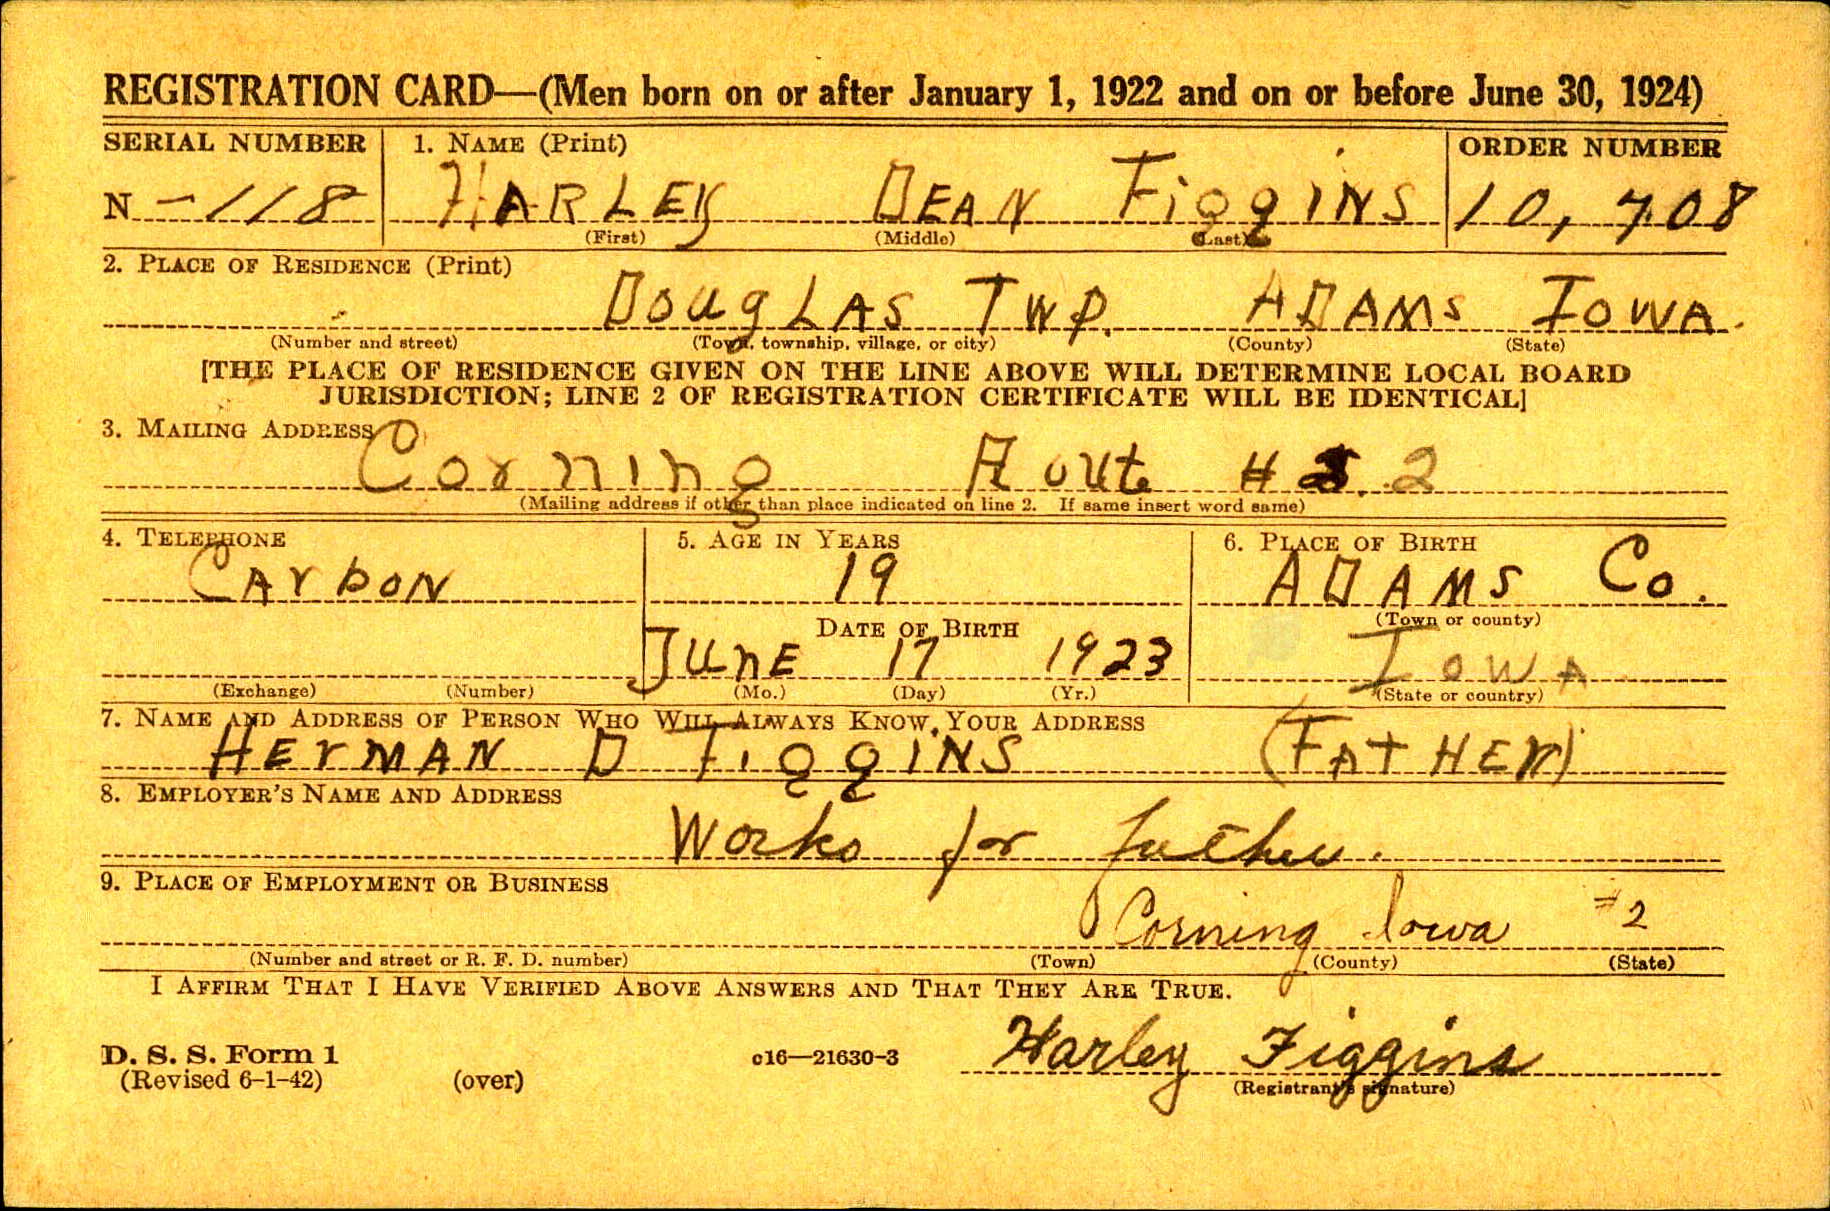 REGISTRATION CARD—(Men born on or after January 1, 1922 and on or before June 30, 1924)
SERIAL NUMBER 1. NAME (Print) ORDER NUMBER
N -118 HARLEY DEAN FiggiNS 10,708
(First) (Middle) (Last)
2. PLACE OF RESIDENCE (Print)
DougLAS TWP. ADAMS IOWA.
(Number and street) (Town, township, village, or city) (County) (State)
[THE PLACE OF RESIDENCE GIVEN ON THE LINE ABOVE WILL DETERMINE LOCAL BOARD
JURISDICTION; LINE 2 OF REGISTRATION CERTIFICATE WILL BE IDENTICAL]
3. MAILING ADDRESS
Corning Route # 2
(Mailing address if other than place indicated on line 2. If same insert word same)
4. TELEPHONE 5. AGE IN YEARS 6. PLACE OF BIRTH
CArboN 19 ADAMS Co.
(Town or county)
DATE OF BIRTH
JUNE 17 1923 IowA
(Exchange) (Number) (Mo.) (Day) (Yr.) (State or country)
7. NAME AND ADDRESS OF PERSON WHO WILL ALWAYS KNOW YOUR ADDRESS
HErMAN D FiggiNS (FATHEr)
8. EMPLOYER'S NAME AND ADDRESS
Works for father.
9. PLACE OF EMPLOYMENT OR BUSINESS
Corning Iowa #2
(Number and street or R. F. D. number) (Town) (County) (State)
I AFFIRM THAT I HAVE VERIFIED ABOVE ANSWERS AND THAT THEY ARE TRUE.
Harley Figgins
D. S. S. Form 1 c16—21630-3
(Revised 6-1-42) (over) (Registrant's signature)